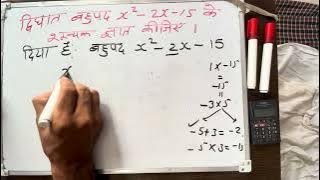 द्विघात बहुपद x² - 2x - 15 के
शून्यक ज्ञात कीजिए ।
दिया है: बहुपद x² - 2x - 15
x
1 × -15
= -15
=
-3 × 5
-5 + 3 = -2
-5 × 3 = -15